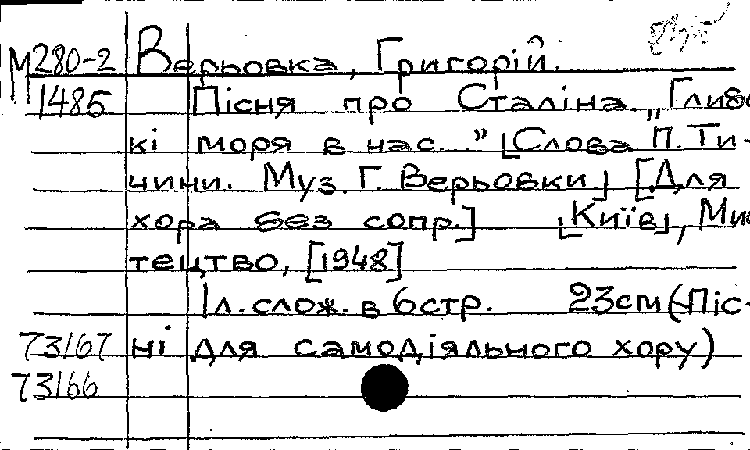 М280-2 Верьовка, Григорій.
1485 Пісня про Сталіна. „Глибо
кі моря в нас..." [Слова П. Ти-
чини. Муз. Г. Верьовки] [Для
хора без сопр.] [Київ], Мис
тецтво, [1948]
1 л. слож. в 6 стр. 23 см (Піс-
73167 ні для самодіяльного хору)
73166